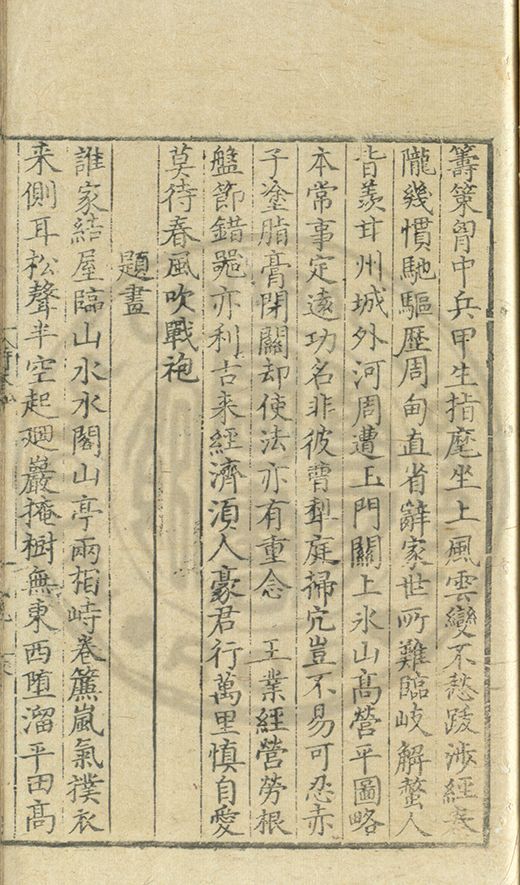 籌策胷中兵甲生指麾坐上風雲變不愁跋涉經
隴幾慣馳驅歷周甸直省辭家世所難臨岐解螯人
皆羨甘州城外河周遭玉門關上氷山高營平圖略
本常事定遠功名非彼曹犁庭掃穴豈不易可忍赤
子塗脂膏閉關却使法亦有重念 王業經營勞根
盤節錯器亦利古来經濟須人豪君行萬里慎自愛
莫待春風吹戰袍
題畫
誰家結屋臨山水水閣山亭兩相峙卷簾嵐氣撲衣
来側耳松聲半空起廻巖掩樹無東西墮溜平田高